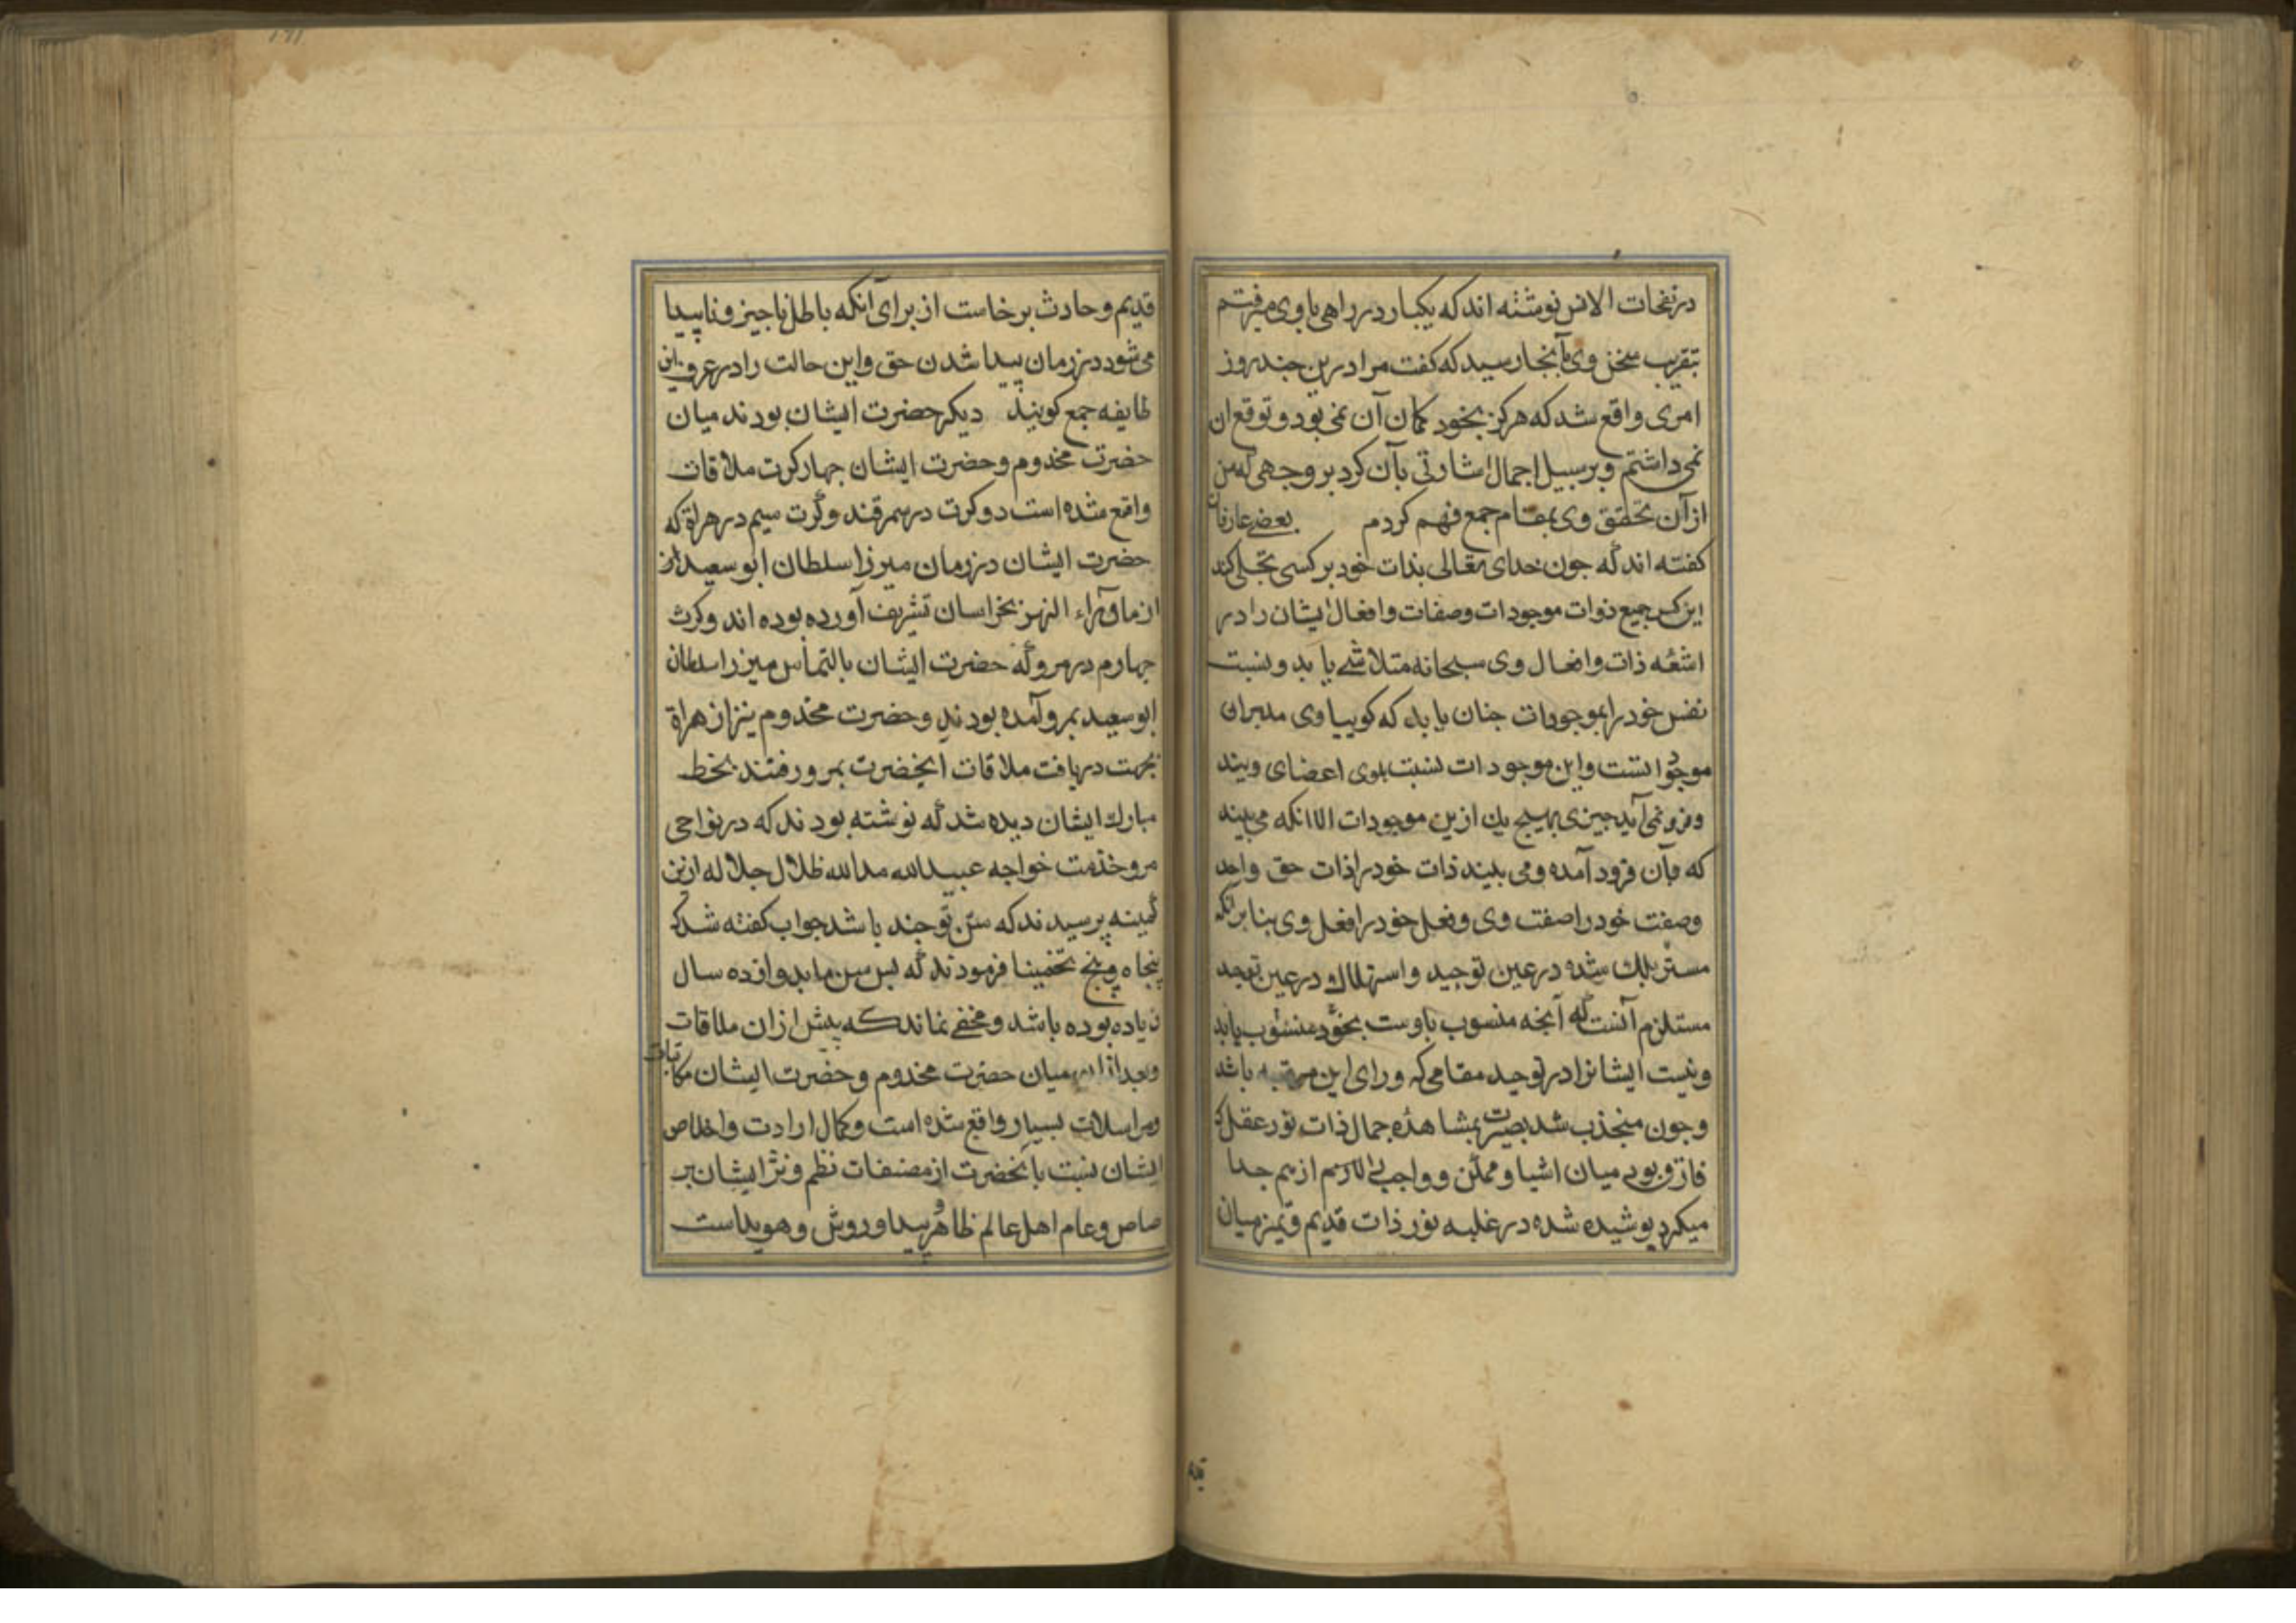 در نفحات الانس نوشته اند که یکبار در راهی با وی میرفتم
بتقریب سخن وی بآنجا رسید که کفت مرا درین چند روز
امری واقع شد که هرکز بخود کمان آن نمی بود و توقع ان
نمی داشتم و بر سبیل اجمال اشارتی بآن کرد بر وجهی که من
از آن تحقق وی بمقام جمع فهم کردم بعضی عارفان
کفته اند که جون خدای تعالی بذات خود بر کسی تجلی کند
این کس جمیع ذوات موجودات وصفات وافعال ایشان را در
اشعه ذات وافعال وی سبحانه متلاشی یابد و نسبت
نفس خود را بموجودات جنان یابد که کوییا وی مدبران
موجوداتست واین موجودات نسبت بوی اعضای ویند
و فرو نمی آید جیزی بهیج یك ازین موجودات الا انکه می بیند
که بآن فرود آمده و می بیند ذات خود را ذات حق واحد
وصفت خود را صفت وی وفعل خود را فعل وی بنا برانکه
مستهلك شده در عین توحید و استهلاك در عین توحید
مستلزم آنست که آنجه منسوب باوست بخود منسوب یابد
ونیست ایشانرا در توحید مقامی که ورای این مرتبه باشد
وجون منجذب شد بصیرت بمشاهده جمال ذات نور عقل که
فارق بود میان اشیا و ممکن و واجب را از هم جدا
میکرد پوشیده شده در غلبه نور ذات قدیم و تمیز میان
قدیم و حادث برخاست از برای آنکه باطل ناجیز و ناپیدا
می شود در زمان پیدا شدن حق واین حالت را در عرف این
طایفه جمع کویند دیکر حضرت ایشان بودند میان
حضرت مخدوم و حضرت ایشان جهار کرت ملاقات
واقع شده است دو کرت در سمرقند و کرت سیم در هراة که
حضرت ایشان در زمان میرزا سلطان ابو سعید از
از ماوراء النهر بخراسان تشریف آورده بوده اند و کرت
جهارم در مرو که حضرت ایشان بالتماس میرزا سلطان
ابو سعید بمرو آمده بودند و حضرت مخدوم نیز از هراة
بجهت دریافت ملاقات انحضرت بمرو رفتند بخط
مبارك ایشان دیده شد که نوشته بودند که در نواحی
مرو خدمت خواجه عبید الله مد الله ظلال جلاله ازین
کمینه پرسیدند که سن تو جند باشد جواب کفته شد که
پنجاه و پنج تخمینا فرمودند که پس سن ما بدوازده سال
زیاده بوده باشد و مخفی نماند که پیش ازان ملاقات
وبعد ازان میان حضرت مخدوم و حضرت ایشان مکاتبات
ومراسلات بسیار واقع شده است و کمال ارادت واخلاص
ایشان نسبت بآنحضرت از مصنفات نظم و نثر ایشان بر
خاص و عام اهل عالم ظاهر و پیدا و روشن و هویداست